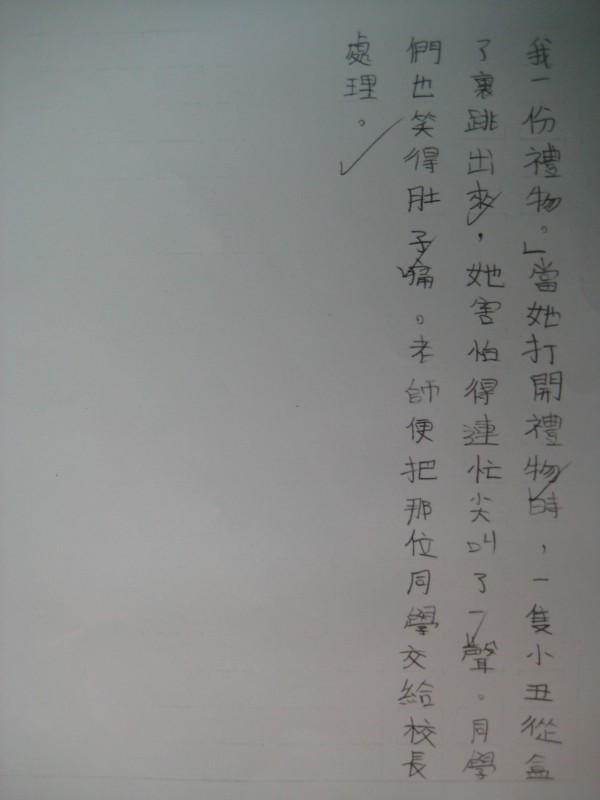 我一份禮物。」當她打開禮物時，一隻小丑從盒
了裏跳出來，她害怕得連忙尖叫了一聲。同學
們也笑得肚子痛。老師便把那位同學交給校長
處理。